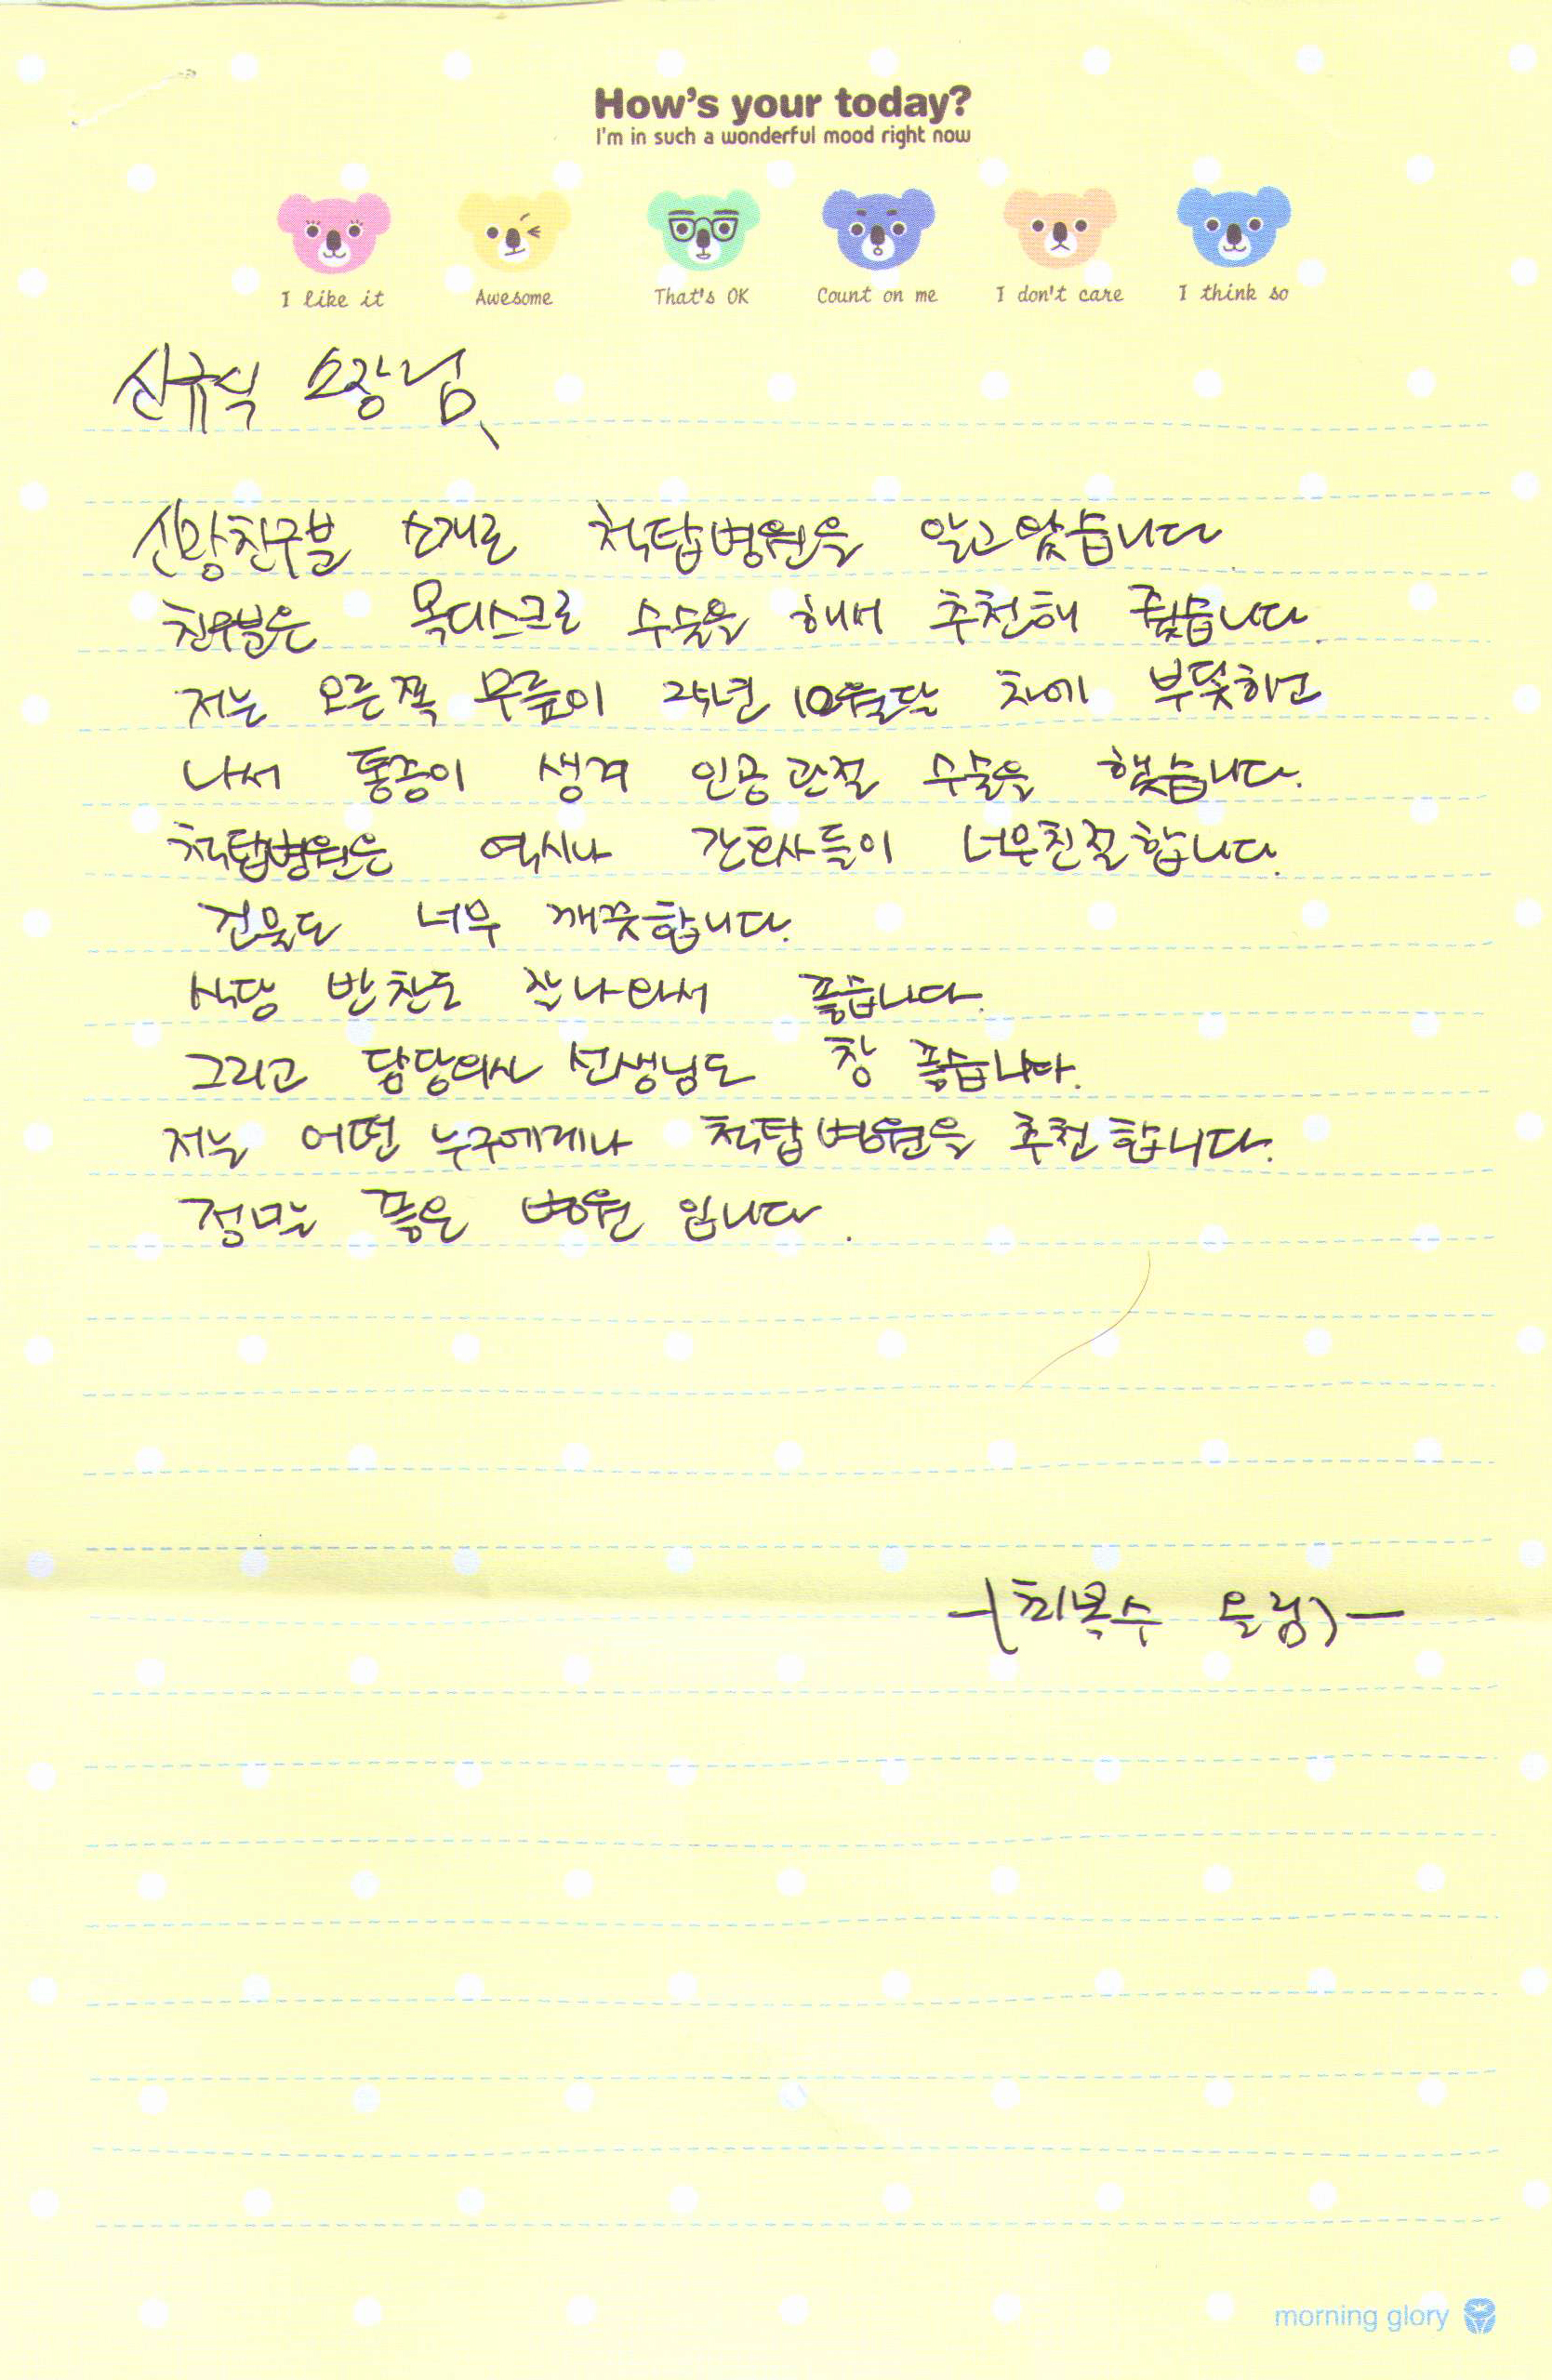 How's your today?
I'm in such a wonderful mood right now
I like it Awesome That's OK Count on me I don't care I think so
신규식 소장님
신랑친구분 소개로 척탑병원을 알고왔습니다.
친구분은 목디스크로 수술을 해서 추천해 줬습니다.
저는 오른쪽 무릎이 24년 10월달 차에 부딪히고
나서 통증이 생겨 인공관절 수술을 했습니다.
척탑병원은 역시나 간호사들이 너무친절합니다.
건물도 너무 깨끗합니다.
식당 반찬도 잘나와서 좋습니다.
그리고 담당의사 선생님도 참 좋습니다.
저는 어떤 누구에게나 척탑병원을 추천합니다.
정말 좋은 병원 입니다.
-(최복수 올림)-
morning glory